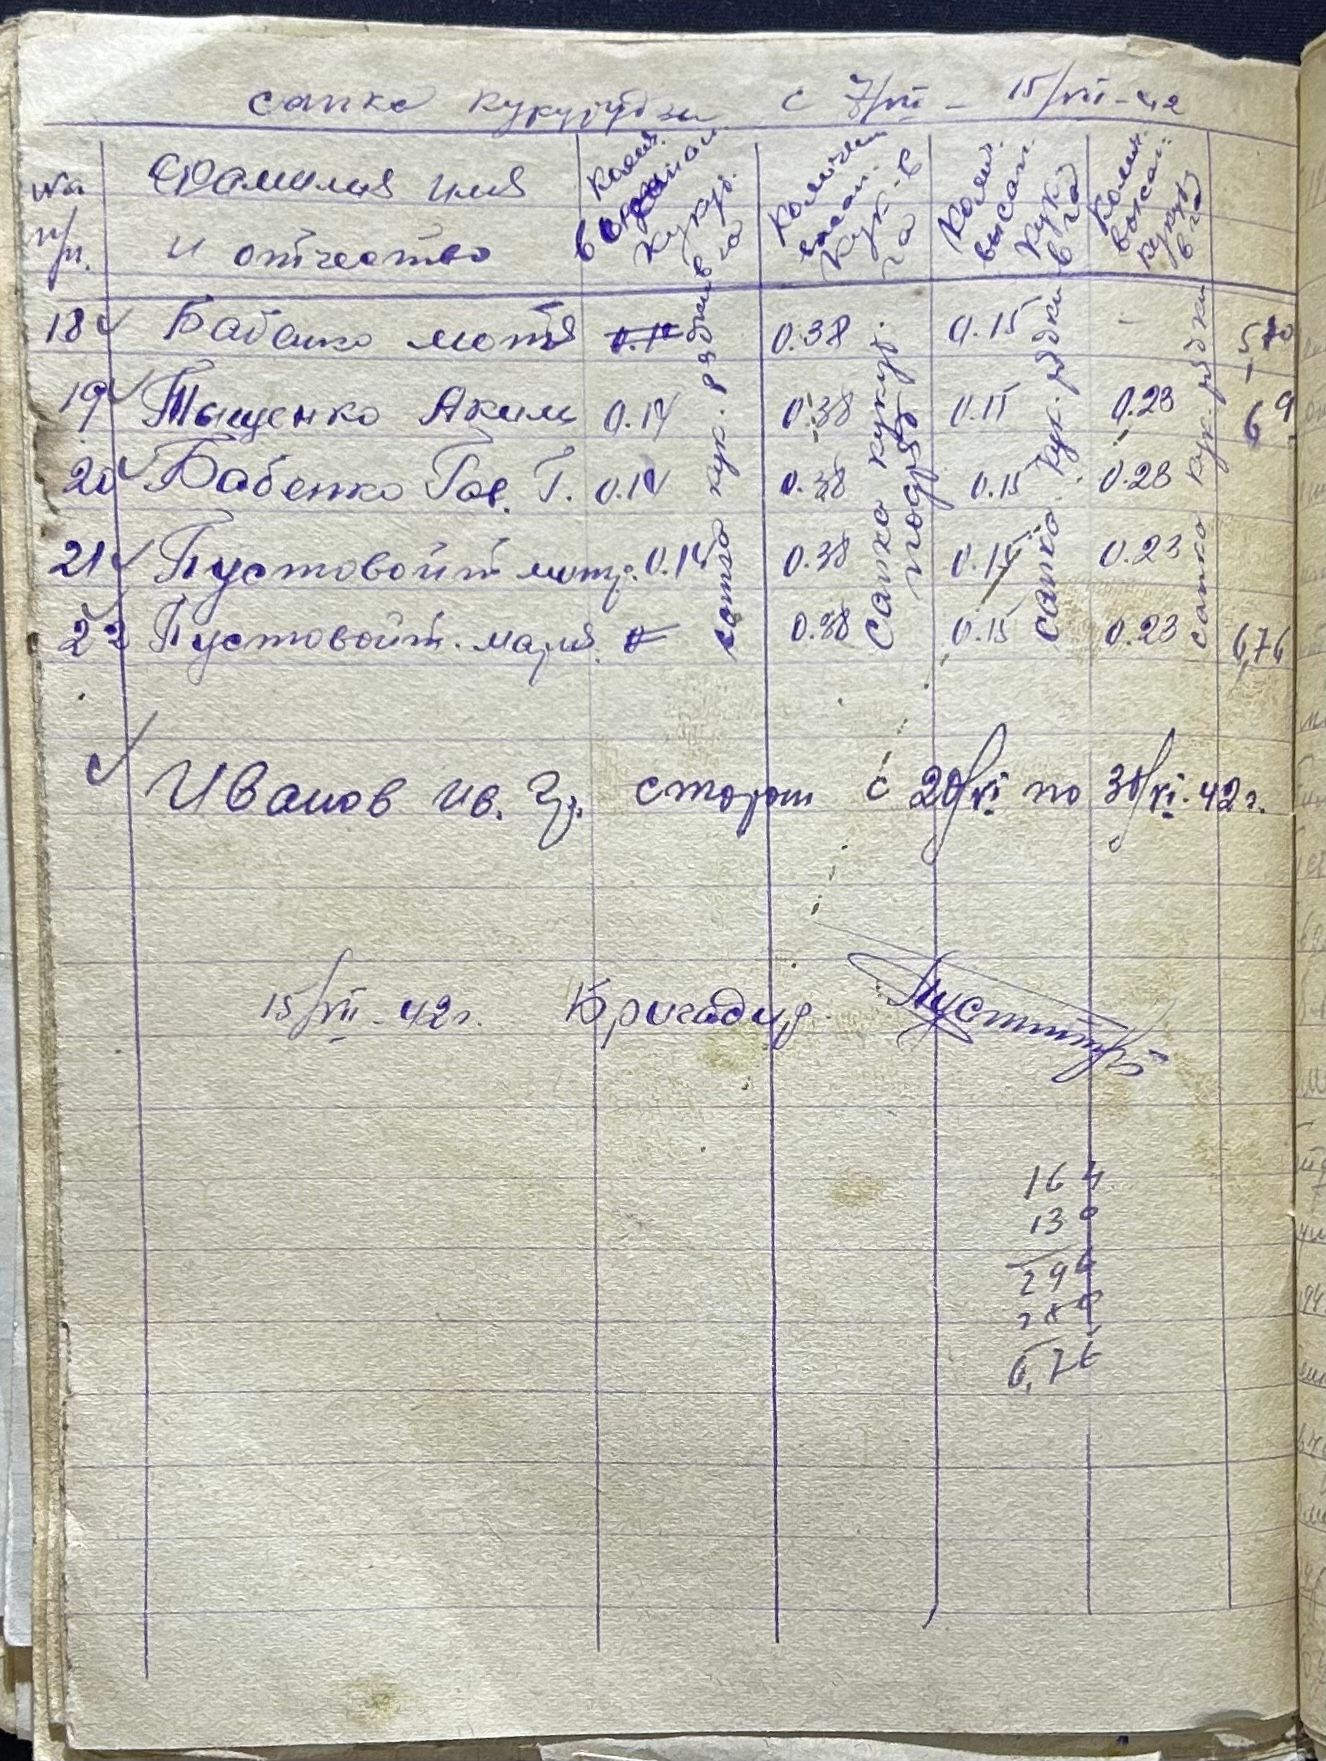 сапка кукурудзи с 7/VII – 15/VII-42
№№ п/п. Фамилия имя и отчество
Колич. кукур. в га
Количест. высап. кук-в га
Колич. высап. кук. в га
Колич. высап. кукур. в га
18 Бабенко мотя 0.38 0.15 –
19 Тыщенко Аким 0.14 0.38 0.15 0.23
20 Бабенко Гав. Г. 0.14 0.38 0.15 0.23
21 Пустовойт мотр. 0.14 0.38 0.15 0.23
22 Пустовойт. мария 0.38 0.15 0.23 6,76
сапка кук.
Сапка кукур.
сапка кук. рядки
сапка кук. рядки
Иванов ив. Гр. сторож с 20/VI по 30/VI-42 г.
15/VII-42 г. Бригадир
164
130
294
280
6,76